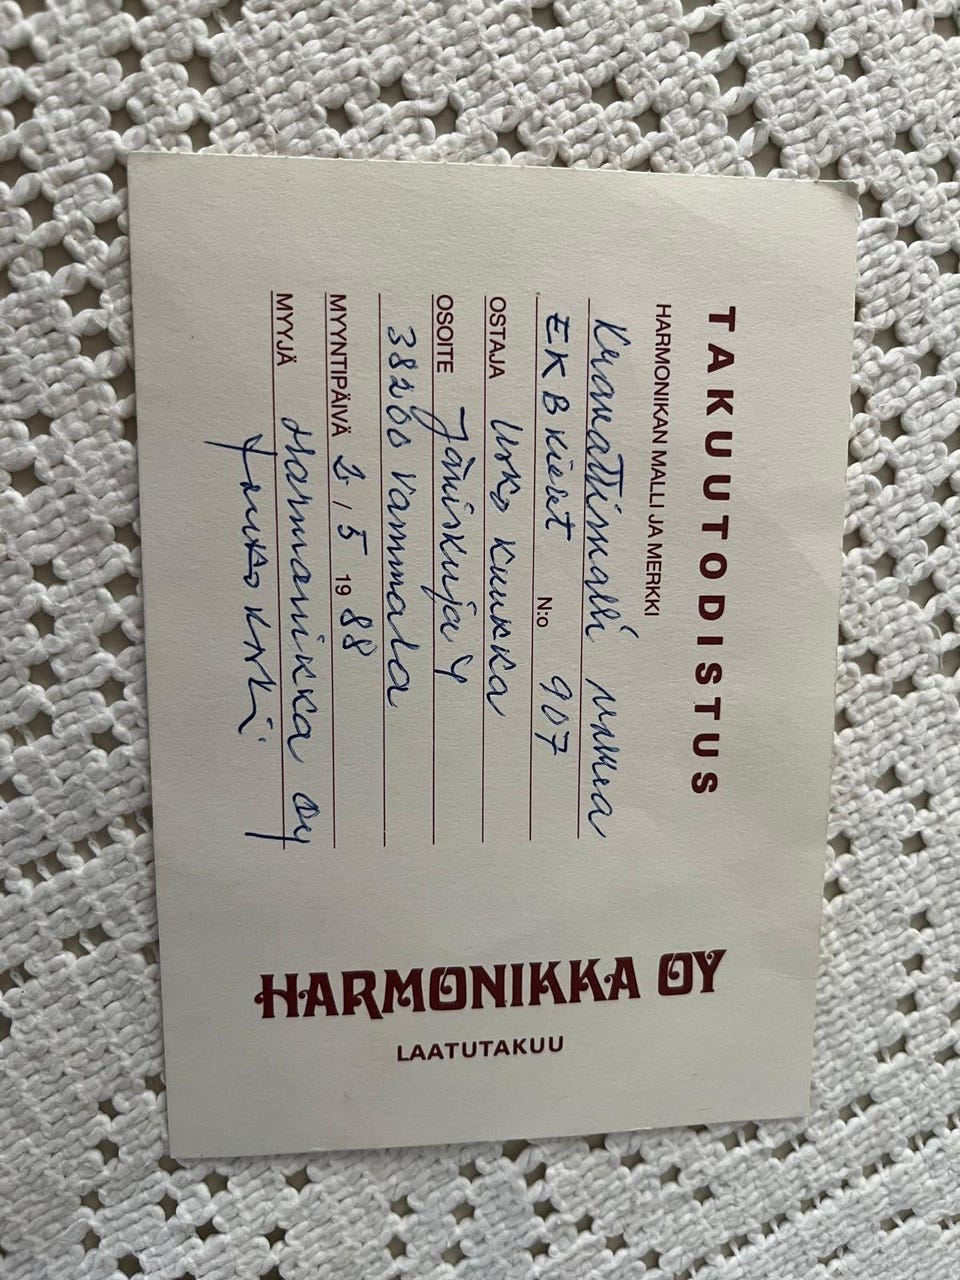 TAKUUTODISTUS
HARMONIKAN MALLI JA MERKKI
musta
EKB kielet N:o 907
OSTAJA Usko Kuukka
OSOITE Jäniskuja 4
38200 Vammala
MYYNTIPÄIVÄ 2 / 5 1988
MYYJÄ Harmonikka Oy
HARMONIKKA OY
LAATUTAKUU